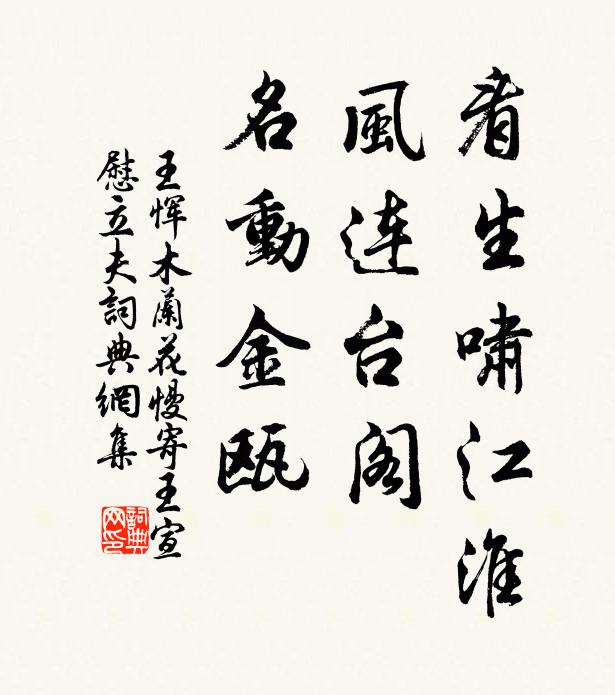 看生啸江淮
風连台阁
名動金瓯
王恽木蘭花慢寄王宣
慰立夫詞典網集
詞典网印